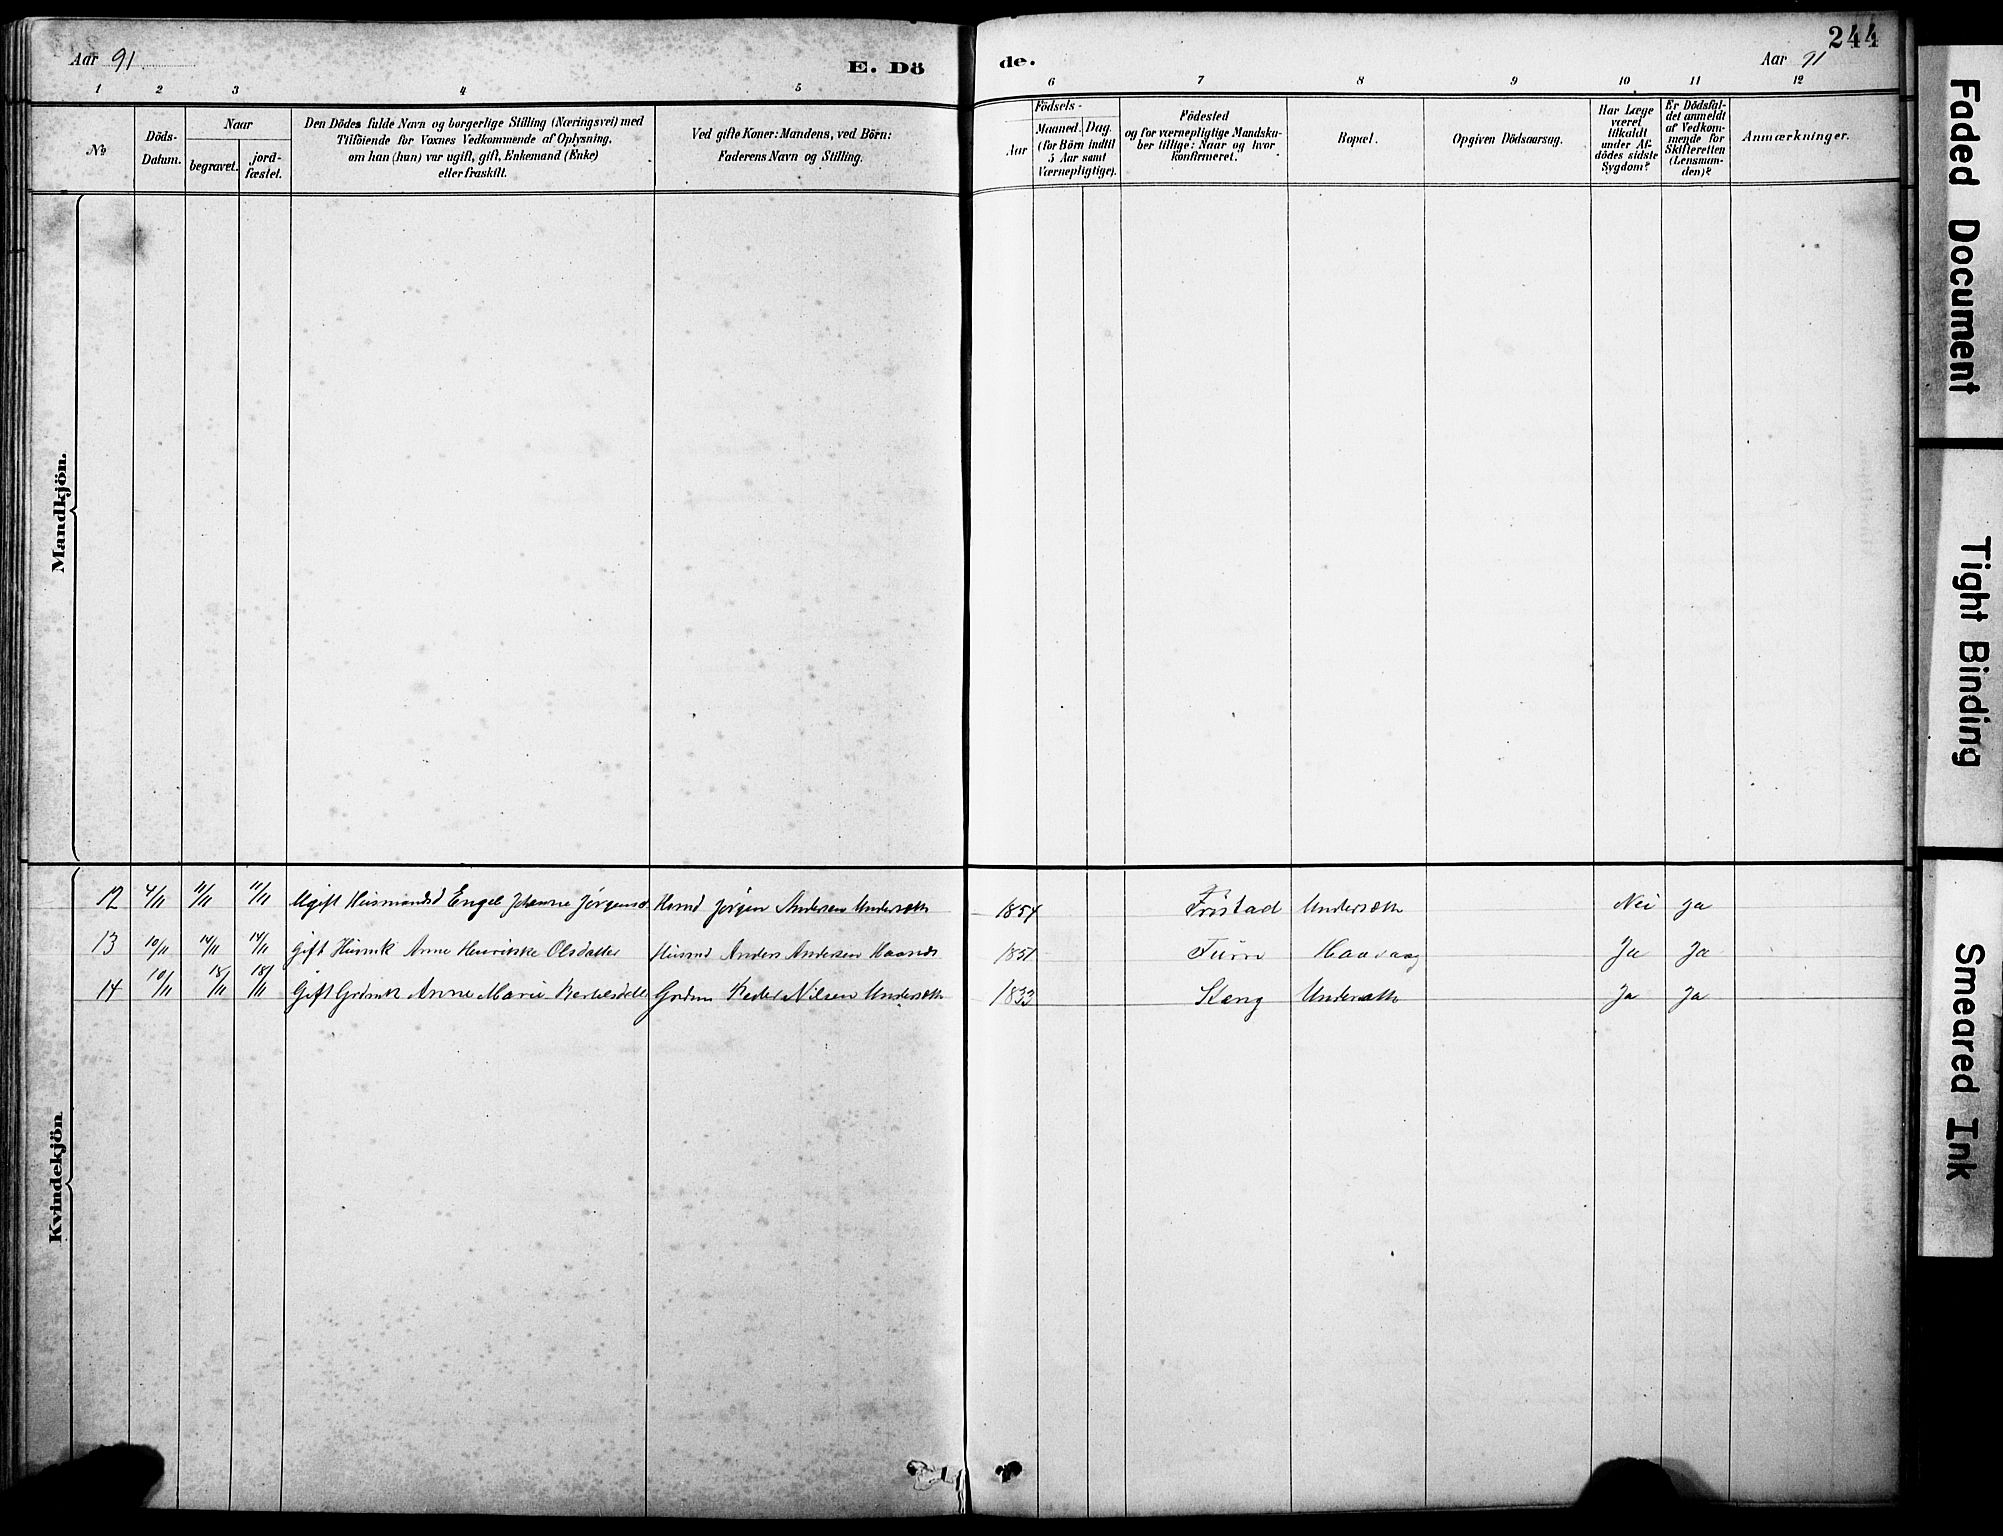 Aar 91
E. Dö
de.
Aar 91
244
1 2 3 4 5 6 7 8 9 10 11 12
No
Döds-
Datum.
Naar
begravet.
jord-
fæstet.
Den Dödes fulde Navn og borgerlige Stilling (Næringsvei) med
Tilföiende for Voxnes Vedkommende af Oplysning,
om han (hun) var ugift, gift, Enkemand (Enke)
eller fraskilt.
Ved gifte Koner: Mandens, ved Börn:
Faderens Navn og Stilling.
Födsels-
Aar
Maaned. Dag.
(for Börn indtil
5 Aar samt
Værnepligtige).
Födested
og for værnepligtige Mandska-
ber tillige: Naar og hvor
konfirmeret.
Bopæl.
Opgiven Dödsaarsag.
Har Læge
været
tilkaldt
under Af-
dödes sidste
Sygdom?
Er Dödsfal-
det anmeldt
af Vedkom-
mende for
Skifteretten
(Lensman-
den)?
Anmærkninger.
Mandkjön.
Kvindekjön
12 4/11 11/11 11/11 Ugift Husmandsd Engel Johanne Jörgensd Husmd Jörgen Andersen Undersæth 1854 Undersæth Nei Ja
13 10/11 14/11 14/11 Gift Husmk Anne Olsdatter Husmd Anders Andersen 1851 Haavaag Ja Ja
14 10/11 18/11 18/11 Gift Grdmk Anne Marie Grdm Peder Nilsen Undersæth 1833 Undersæth Ja Ja
Faded Document
Tight Binding
Smeared Ink